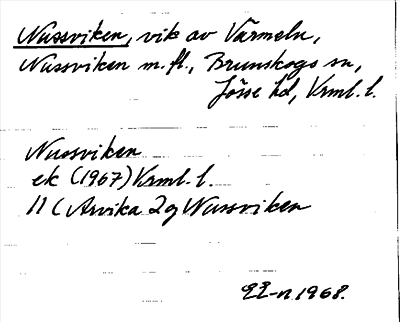 Nussviken, vik av Värmeln,
Nussviken m.fl., Brunskogs sn,
Jösse hd, Vrml. l.
Nussviken
ek (1967) Vrml. l.
11 C Arvika 2g Nussviken
1968.